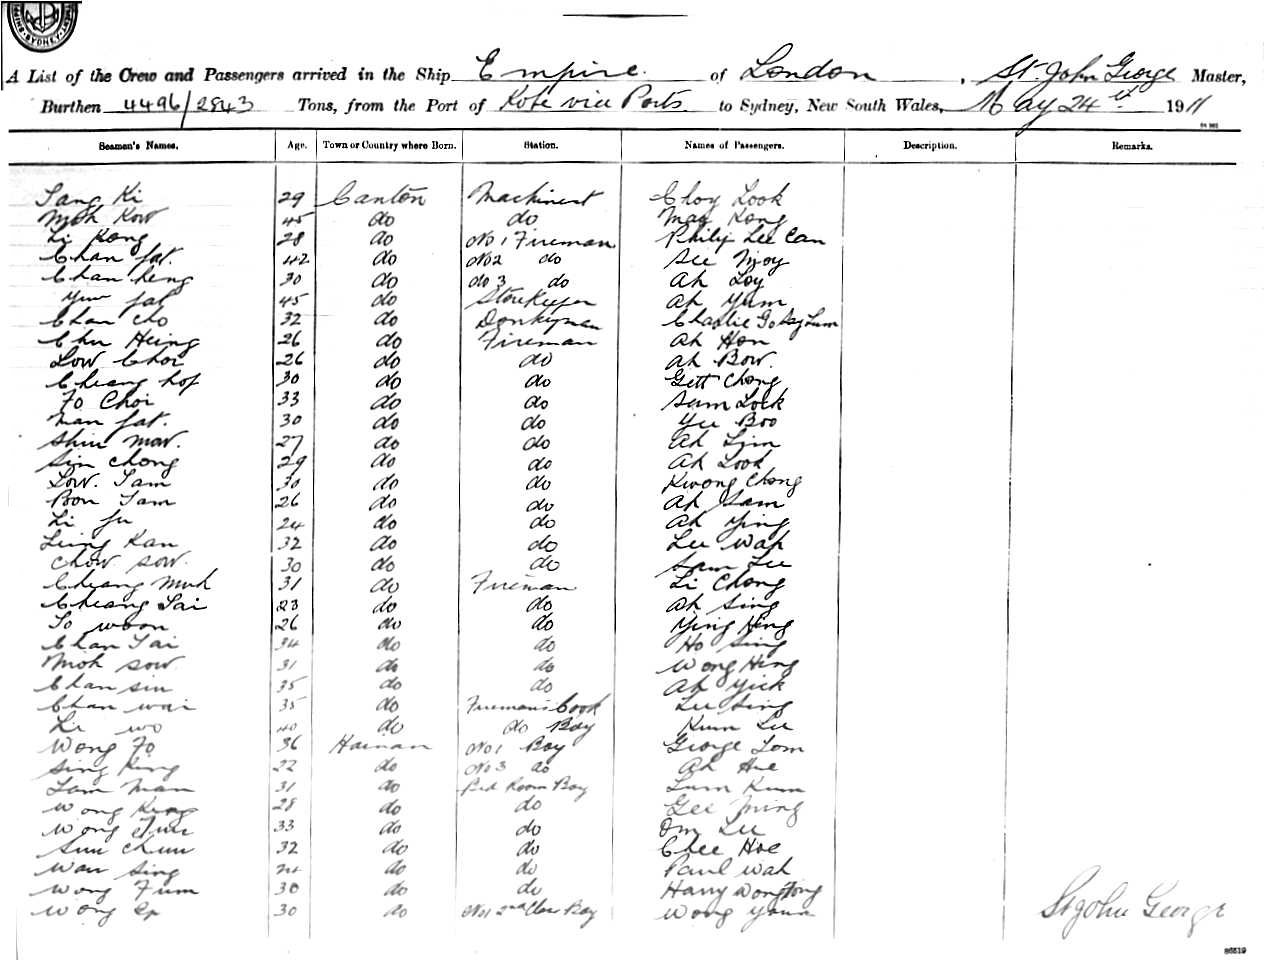 SYDNEY
A List of the Crew and Passengers arrived in the Ship Empire. of London, St. John George Master,
Burthen 4496/2843 Tons, from the Port of Kobe via Ports to Sydney, New South Wales, May 24th 1911
Seamen's Names. Age. Town or Country where Born. Station. Names of Passengers. Description. Remarks.
Tang Ki 29 Canton Machinist Choy Look
Moh Kow 45 do do May Kong
Li Kong 28 do No 1 Fireman Philip Lee Can
Chan fat. 42 do No 2 do See Moy
Chan heng 30 do No 3 do Ah Loy
Yuw fat 45 do Storekeeper Ah Yum
Chan Cho 32 do Donkeyman Charlie Go Say Lum
Chu Heing 26 do Fireman Ah Hon
Low Choi 26 do do Ah Bow.
Cheang hop 30 do do Gett Chong
Fo Choi 33 do do Sum Lock
Man fat. 30 do do Yee Boo
Shiu mow. 27 do do Ah Lim
Sin Chong 29 do do Ah Look
Low. Tam 30 do do Kwong Chong
Bow Tam 26 do do Ah Sam
Li fu 24 do do Ah Ying
Leing Kan 32 do do Lee Wah
Chow Sow. 30 do do Sam Lee
Cheang Muh 31 do Fireman Li Chong
Cheang Tai 23 do do Ah Sing
To woon 26 do do Ying Heng
Chan Tai 34 do do Ho Sing
Moh Sow 31 do do Wong Hing
Chan sin 35 do do Ah Yick
Chan wai 35 do Fireman's Cook Lee Sing
Li wo 40 do do Boy Kum Lee
Wong Fo 36 Hainan No 1 Boy George Lom
Sing King 22 do No 3 do Ah Hee
Lam Man 31 do Bed Room Boy Lum Kum
Wong King 28 do do Gee Ming
Wong Tuu 33 do do Om Lee
Sun Chun 32 do do Chee Hoe
Wan Sing 24 do do Paul Wah
Wong Fum 30 do do Harry Wong Tong
Wong Ep 30 do No 1 2nd Class Boy Wong Youn
St John George
86519